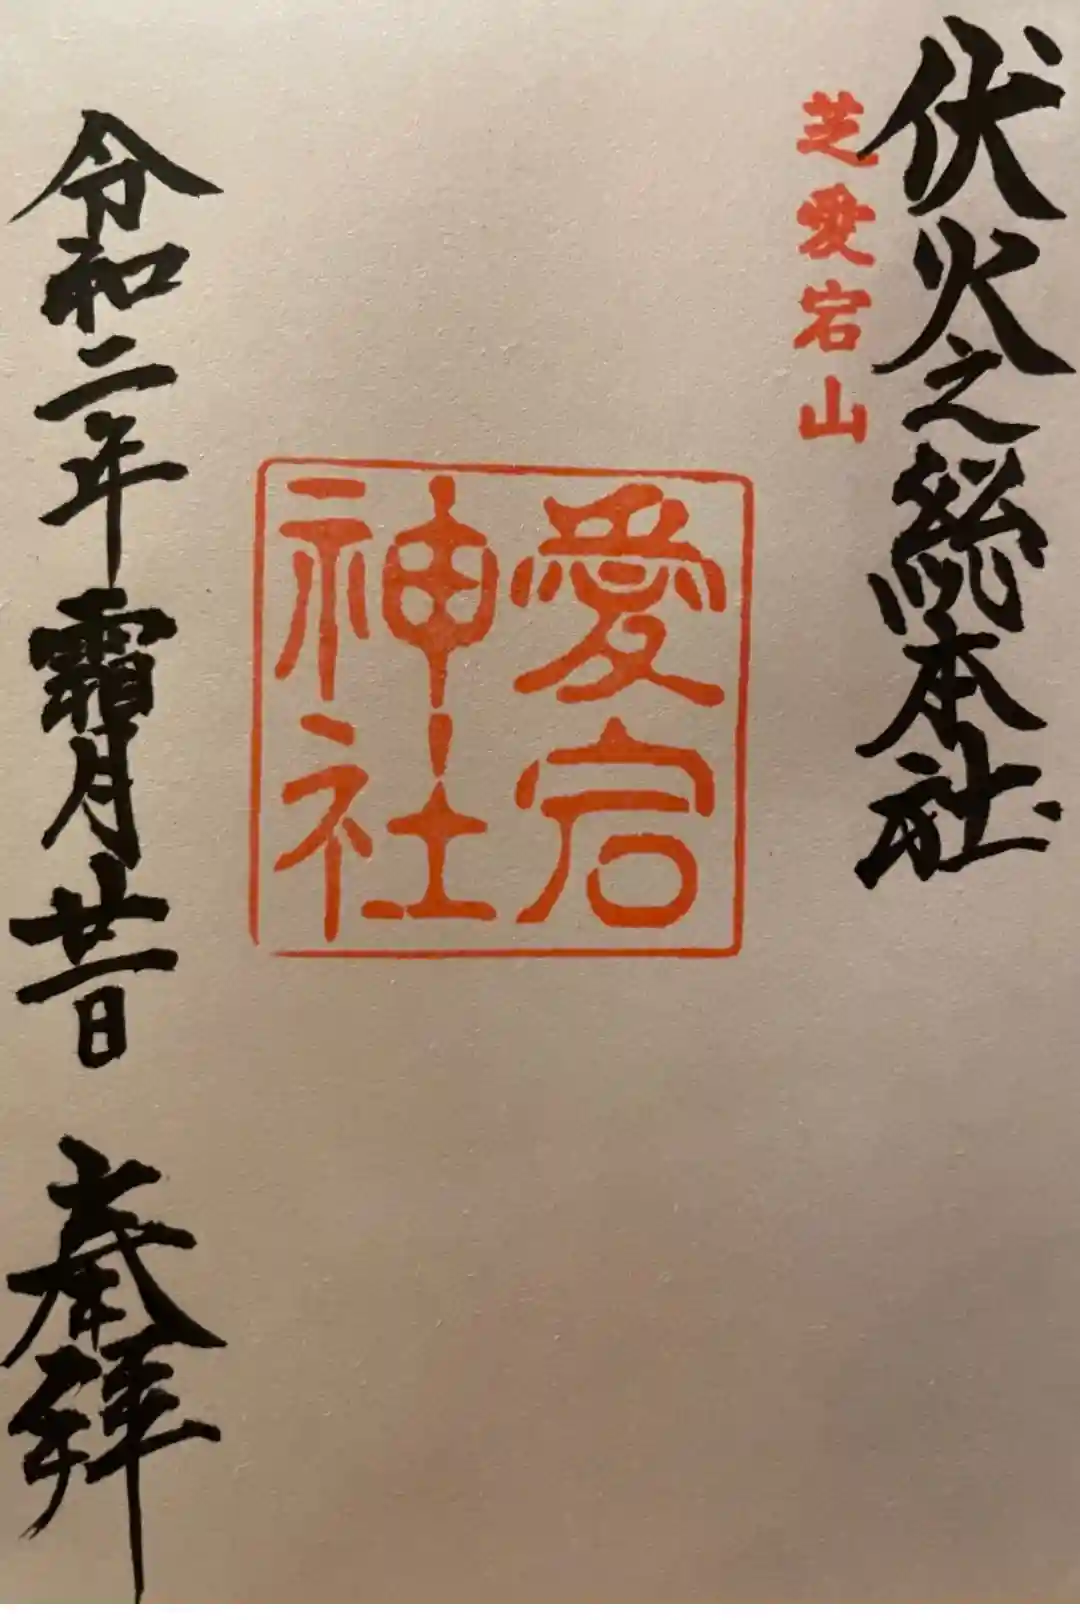 伏火之総本社
芝愛宕山
愛宕
神社
令和二年霜月廿一日
奉拝